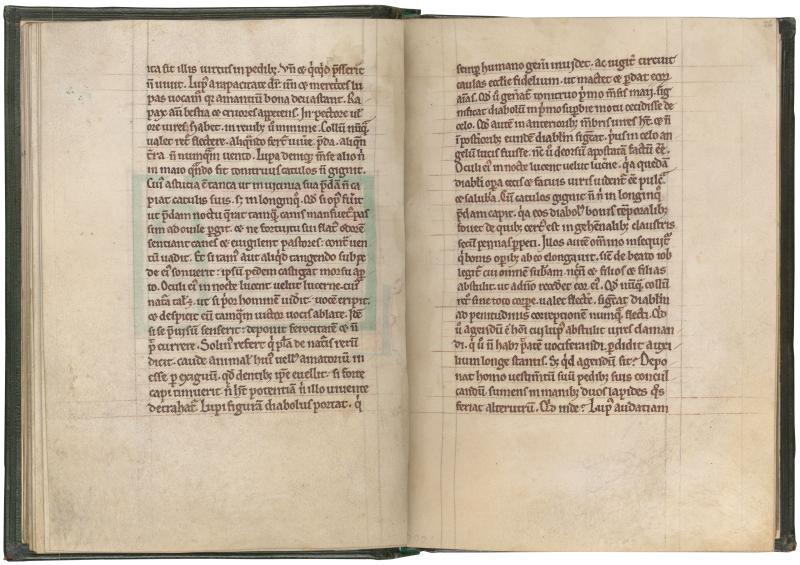 ita sit illis uirtus in pedibꝫ. Vn̄ ⁊ q̇q̇d p̄sserīt
n̄ uiuit. Lupꝰ a rapacitate dr̄. un̄ ⁊ meretrices lu
pas uocamꝰ q̄ amantiū bona deuastant. Ra
pax aūt bestia ⁊ cruoris appetens. In pectore uł
ore uires habet. in renibꝫ ū minime. Collū nūq̄
ualet retˀ flectere. aliqn̄do fertˀ uiue p̄da. aliqn̄
tˀra n̄ numq̄m uento. Lupa deniqꝫ m̄se alio n̄
in maio qn̄do fit tonitruus catulos n̄ gignit.
Cuiˀ astutia ē tanta ut in uicinia sua p̄dā n̄ ca
piat catulis suis. sꝫ in longinq̊. Qd̄ si opˀ fuˀit
ut p̄dam noctu q̄rat tamq̄ canis mansuetˀ pas
sim ad ouile p̄git. ⁊ ne fortuitu sui flatˀ odorē
sentiant canes ⁊ euigilent pastores. contˀ uen
tū uadit. Et si ramˀ aut aliqd̄ tangendo sub pe
de eiˀ sonuerit. ipsū pedem castigat morsu apˀ
to. Oculi eiˀ in nocte lucent uelut lucerne. cuiˀ
natˀa tał ē. ut si pˀor hominem uiditˀ. uocē eripit.
⁊ despicit eū tamq̄m uictor uocis ablate. Itē
si se p̄uisum senserit. deponit ferocitatē ⁊ n̄
pˀ currere. Solinˀ refert q̇ pl̄a de natˀis rerū
dicit. caude animał huiˀ uellˀ amatoriū in
esse pˀ exiguū. qd̄ dentibꝫ ip̄e euellit. si forte
capi timuerit. n̄ hꝫ potentiā n̄ illo uiuente
detrahatˀ. Lupi figurā diabolus portat. q̇
semꝑ humano gen̄i inuidet. ac iugitˀ circuit
caulas eccl̄ie fidelium. ut mactet ⁊ p̄dat eorꝫ
aīas. Qd̄ ū gn̄atˀ tonitruo pˀmo m̄sis maii. sig
nificat diabolū in pˀmo supˀbie motu cecidisse de
celo. Qd̄ aut̄ in anteriorib; m̄bris uires hꝫ. ⁊ n̄
ī posteriorib; eundē diablm̄ sig̃t. pˀus in celo an
gelū lucis fuisse. nc̄ ū deorsū apostatā factū eē.
Oculi eiˀ in nocte lucent uelut lucˀne. q̇a quedā
diabli opˀa cecis ⁊ fatuis uiris uident̄ eē pulcˀ
⁊ salubˀa. Cū catulos gignit n̄ n̄ in longinq̊
p̄dam capit. q̇a eos diabolˀ bonis tēporalib;
fouet de quib; certˀ est in gehēnalib; claustris
secū pennas p̄peti. Illos autē om̄ino inseq̇t̄
q̇ bonis opˀib; ab eo elongant̄. sic̄ de beato iob
legit̄ cui omnē sub̄am. nc̄n ⁊ filios ⁊ filias
abstulit. ut a dn̄o recedet̄ cor eiˀ. Qd̄ nūq̄ collū
retˀ sine toto corpˀe ualet flectˀe. sig̃t diablm̄
ad penitudinis correptionē numq̄ flecti. Qd̄
ū agendū ē hōi cui lupˀ abstulit uires claman
di. q̇ ū n̄ habꝫ p̄tatē uociferandi. p̄didit auxi
lium longe stantis. Sꝫ q̇d agendū sit? Depo
nat homo uestim̄tū suū pedib; suis concul
candū. sumens in manib; duos lapides q̊s
feriat alterutrū. Qd̄ inde? Lupˀ audatiam